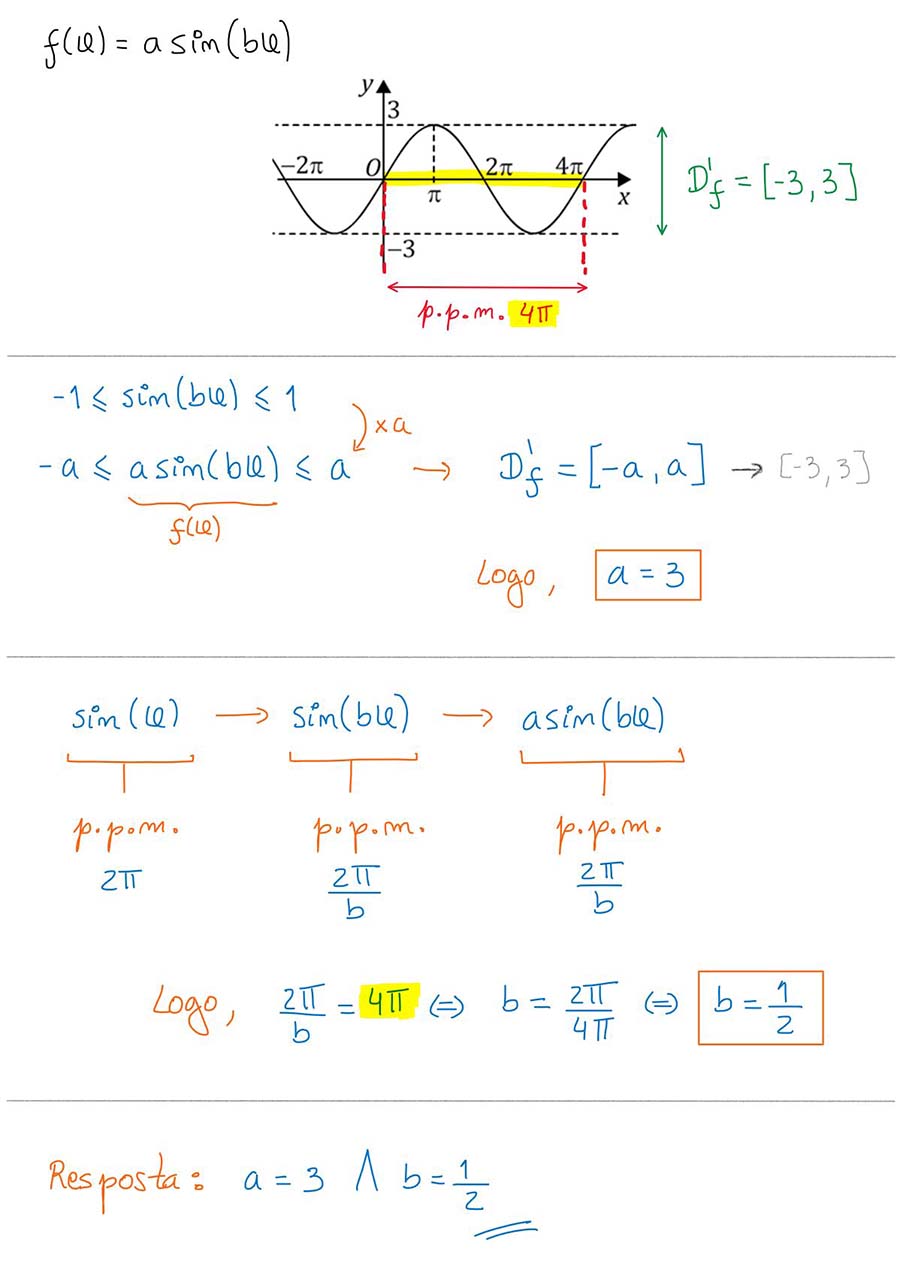 f(x) = a sin(bx)
y
3
-2π O 2π 4π
π x
-3
D'f = [-3, 3]
p.p.m. 4π
-1 ⩽ sin(bx) ⩽ 1
×a
-a ⩽ a sin(bx) ⩽ a → D'f = [-a, a] → [-3, 3]
f(x)
Logo, a = 3
sin(x) → sin(bx) → a sin(bx)
p.p.m. p.p.m. p.p.m.
2π 2π/b 2π/b
Logo, 2π/b = 4π ⇔ b = 2π/4π ⇔ b = 1/2
Resposta: a = 3 ∧ b = 1/2